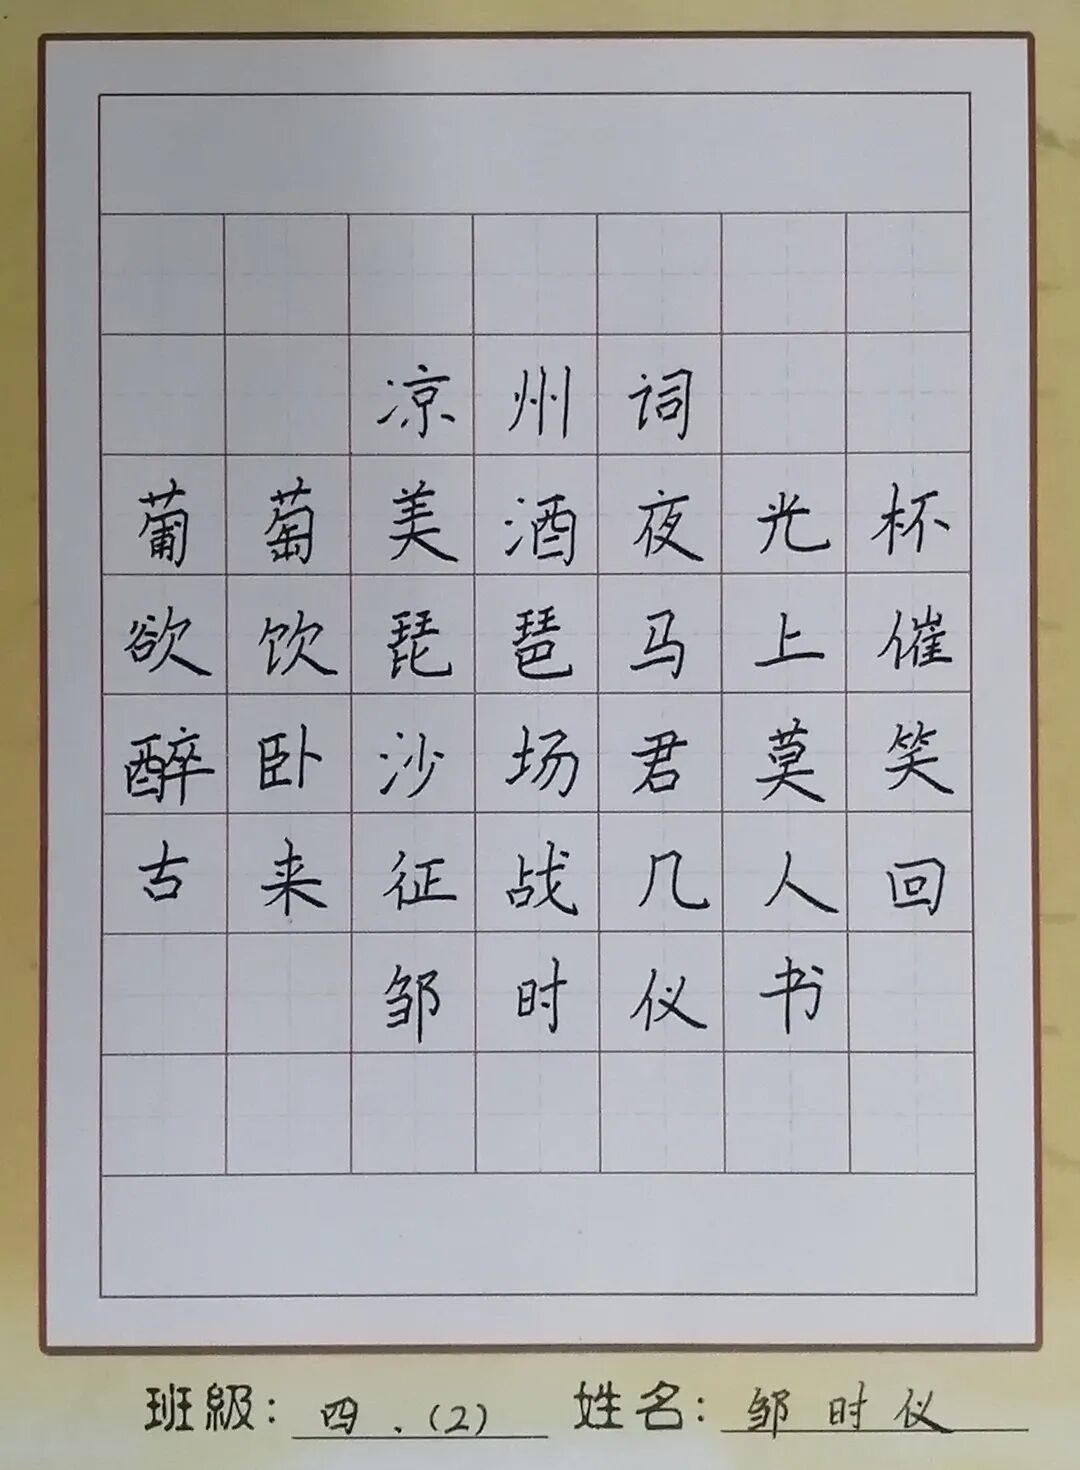 凉州词
葡萄美酒夜光杯
欲饮琵琶马上催
醉卧沙场君莫笑
古来征战几人回
邹时仪书
班級：四.（2） 姓名：邹时仪